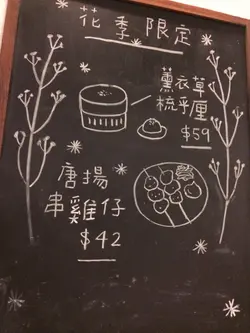 花季限定
薰衣草
梳乎厘
$59
唐揚
串雞仔
$42